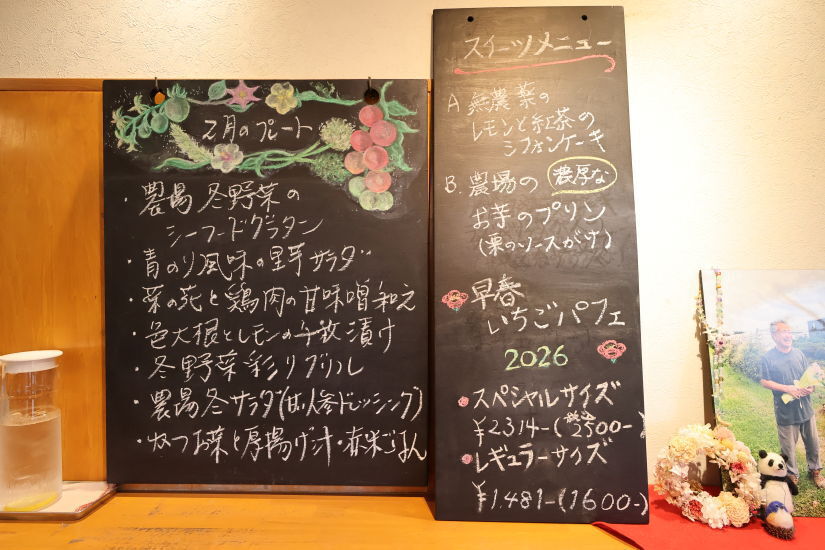 2月のプレート
・農場 冬野菜の
シーフードグラタン
・青のり風味の里芋サラダ
・菜の花と鶏肉の甘味噌和え
・色大根とレモンの 漬け
・冬野菜彩りグリル
・農場冬サラダ(甘い人参ドレッシング)
・お菜と厚揚げ汁・赤米ごはん
スイーツメニュー
A 無農薬の
レモンと紅茶の
シフォンケーキ
B. 農場の 濃厚な
お芋のプリン
(栗のソースがけ)
早春
いちごパフェ
2026
スペシャルサイズ
¥2314-(税込2500-)
レギュラーサイズ
¥1.481-(1600-)